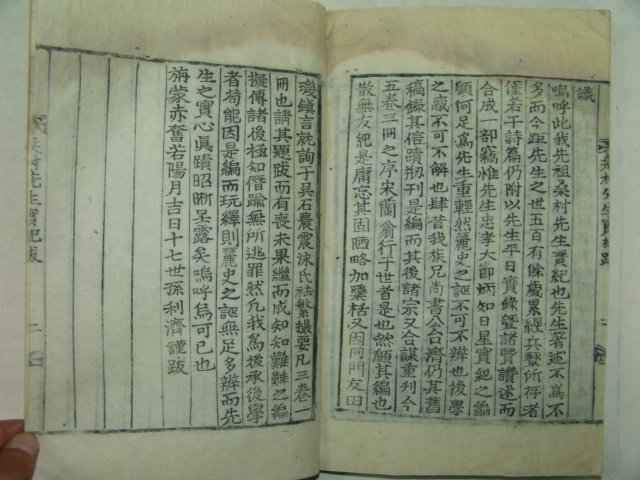 識
嗚呼此我先祖桑村先生實紀也先生著述不爲不
多而今距先生之世五百有餘歲累經兵燹所存者
僅若干詩篇仍附以先生平日實錄曁諸贊讚述而
合成一部竊惟先生忠孝大節炳如日星實紀之編
顧何足爲先生重輕然麗史之誣不可不辨也後學
之惑不可不解也肆昔我族兄尙書公台濟仍其舊
稿錄其信蹟剏刊是編而其後諸宗又合謀重刊今
五卷三冊之序宋蘭翁行于世者是也然顧其編也
散無友紀是庸忘其固陋略加櫽栝又因同門友田
璣鎭言就詢于吳石農震泳氏祛繁撮要凡三卷一
冊也請其題跋而有喪未果繼而成知知難難之編
擬傳諸後極知僭踰無所逃罪然凡我爲後承後學
者倘能因是編而玩繹則麗史之誣無足多辨而先
生之實心眞蹟昭晣呈露矣嗚呼爲可已也
旃蒙赤奮若陽月吉日十七世孫利濟謹跋
桑村先生實紀跋
二